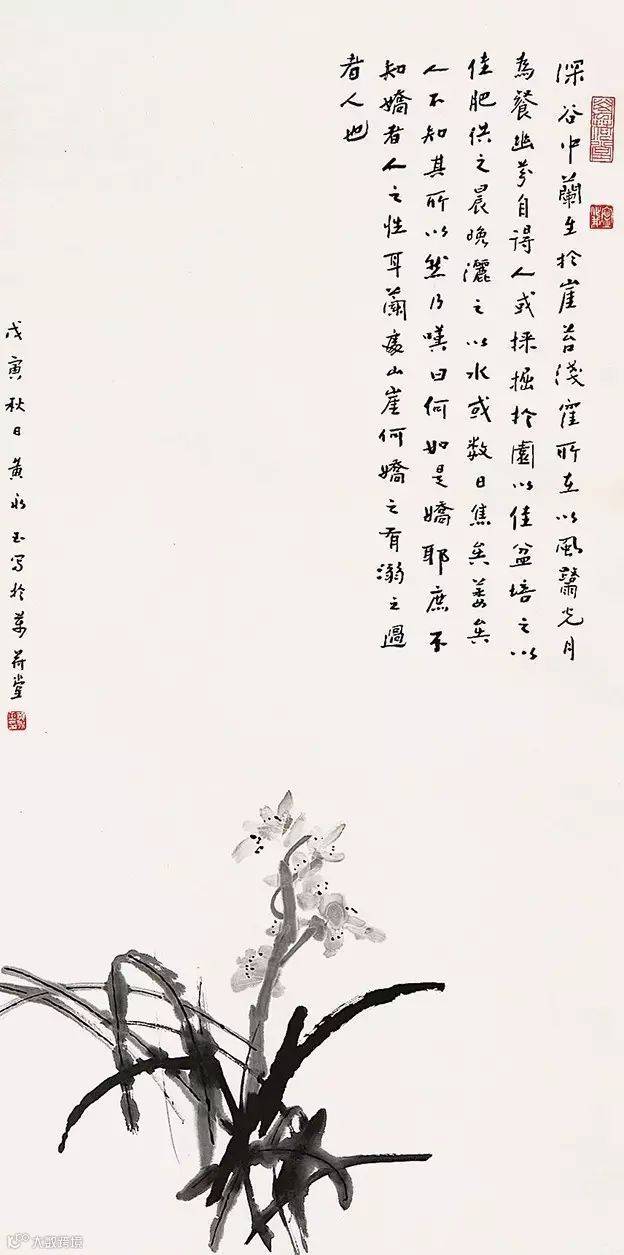 深谷中蘭生於崖苔淺所在以風霽光月
為餐幽芬自得人或採掘於園以佳盆培之以
佳肥供之晨晚灑之以水或数日焦矣萎矣
人不知其所以然乃嘆曰何如是嬌耶庶不
知嬌者人之性耳蘭處山崖何嬌之有溺之過
者人也
戊寅秋日黃永玉写於萬荷堂
大数跨境